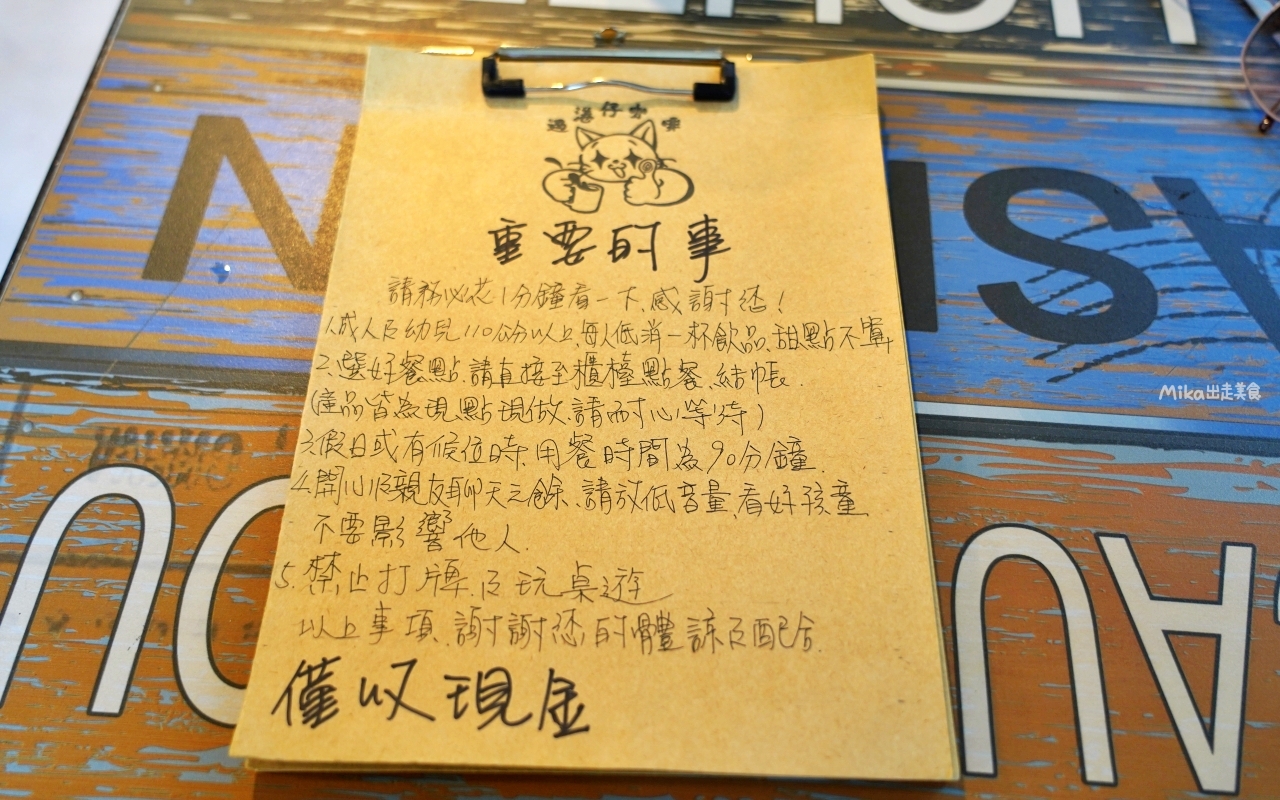 邊邊仔咖啡
重要的事
請務必花1分鐘看一下.感謝您!
1.成人及幼兒110公分以上,每人低消一杯飲品.甜點不算
2.選好餐點.請直接至櫃檯點餐.結帳.
(產品皆為現點現做.請耐心等待)
3.假日或有候位時.用餐時間為90分鐘.
4.開心及親友聊天之餘.請放低音量.看好孩童
不要影響他人.
5.禁止打牌.及玩桌遊
以上事項.謝謝您的體諒及配合.
僅收現金
Mika出走美食
N
SI